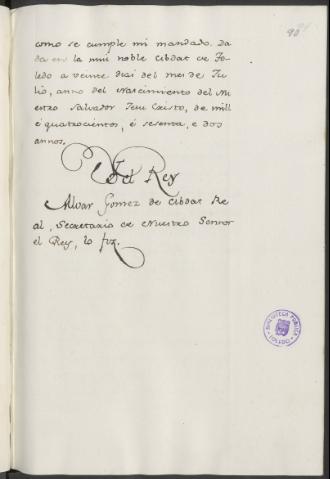 como se cumple mi mandado. Da
da en la mui noble cibdat de To-
ledo a veinte dias del mes de Ju
lio, anno del Nascimiento del Nu
estro Salvador Jesu Cristo, de mill
é quatrocientos, é sesenta, e dos
annos.
Yo el Rey
Alvar Gomez de Cibdat Re
al, Secretario de Nuestro Sennor
el Rey, lo fiz.
BIBLIOTECA PUBLICA
TOLEDO